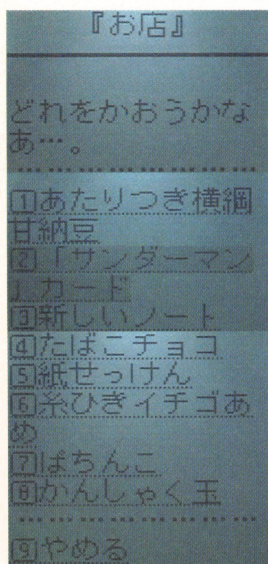 『お店』
どれをかおうかな
あ…。
1あたりつき横綱
甘納豆
2「サンダーマン
」カード
3新しいノート
4たばこチョコ
5紙せっけん
6糸ひきイチゴあ
め
7ぱちんこ
8かんしゃく玉
9やめる